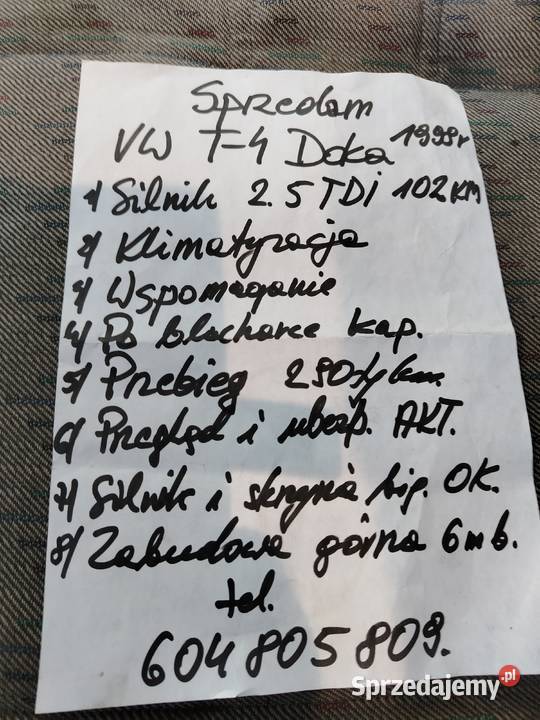 Sprzedam
VW T-4 Doka 1998r
1/ Silnik 2.5 TDI 102 KM
2/ Klimatyzacja
3/ Wspomaganie
4/ Po blacharce kap.
5/ Przebieg 290 ty km
6/ Przegląd i ubezp. AKT.
7/ Silnik i skrzynia big. OK.
8/ Zabudowa górna 6 mb.
tel.
604 805 809.
Sprzedajemy.pl